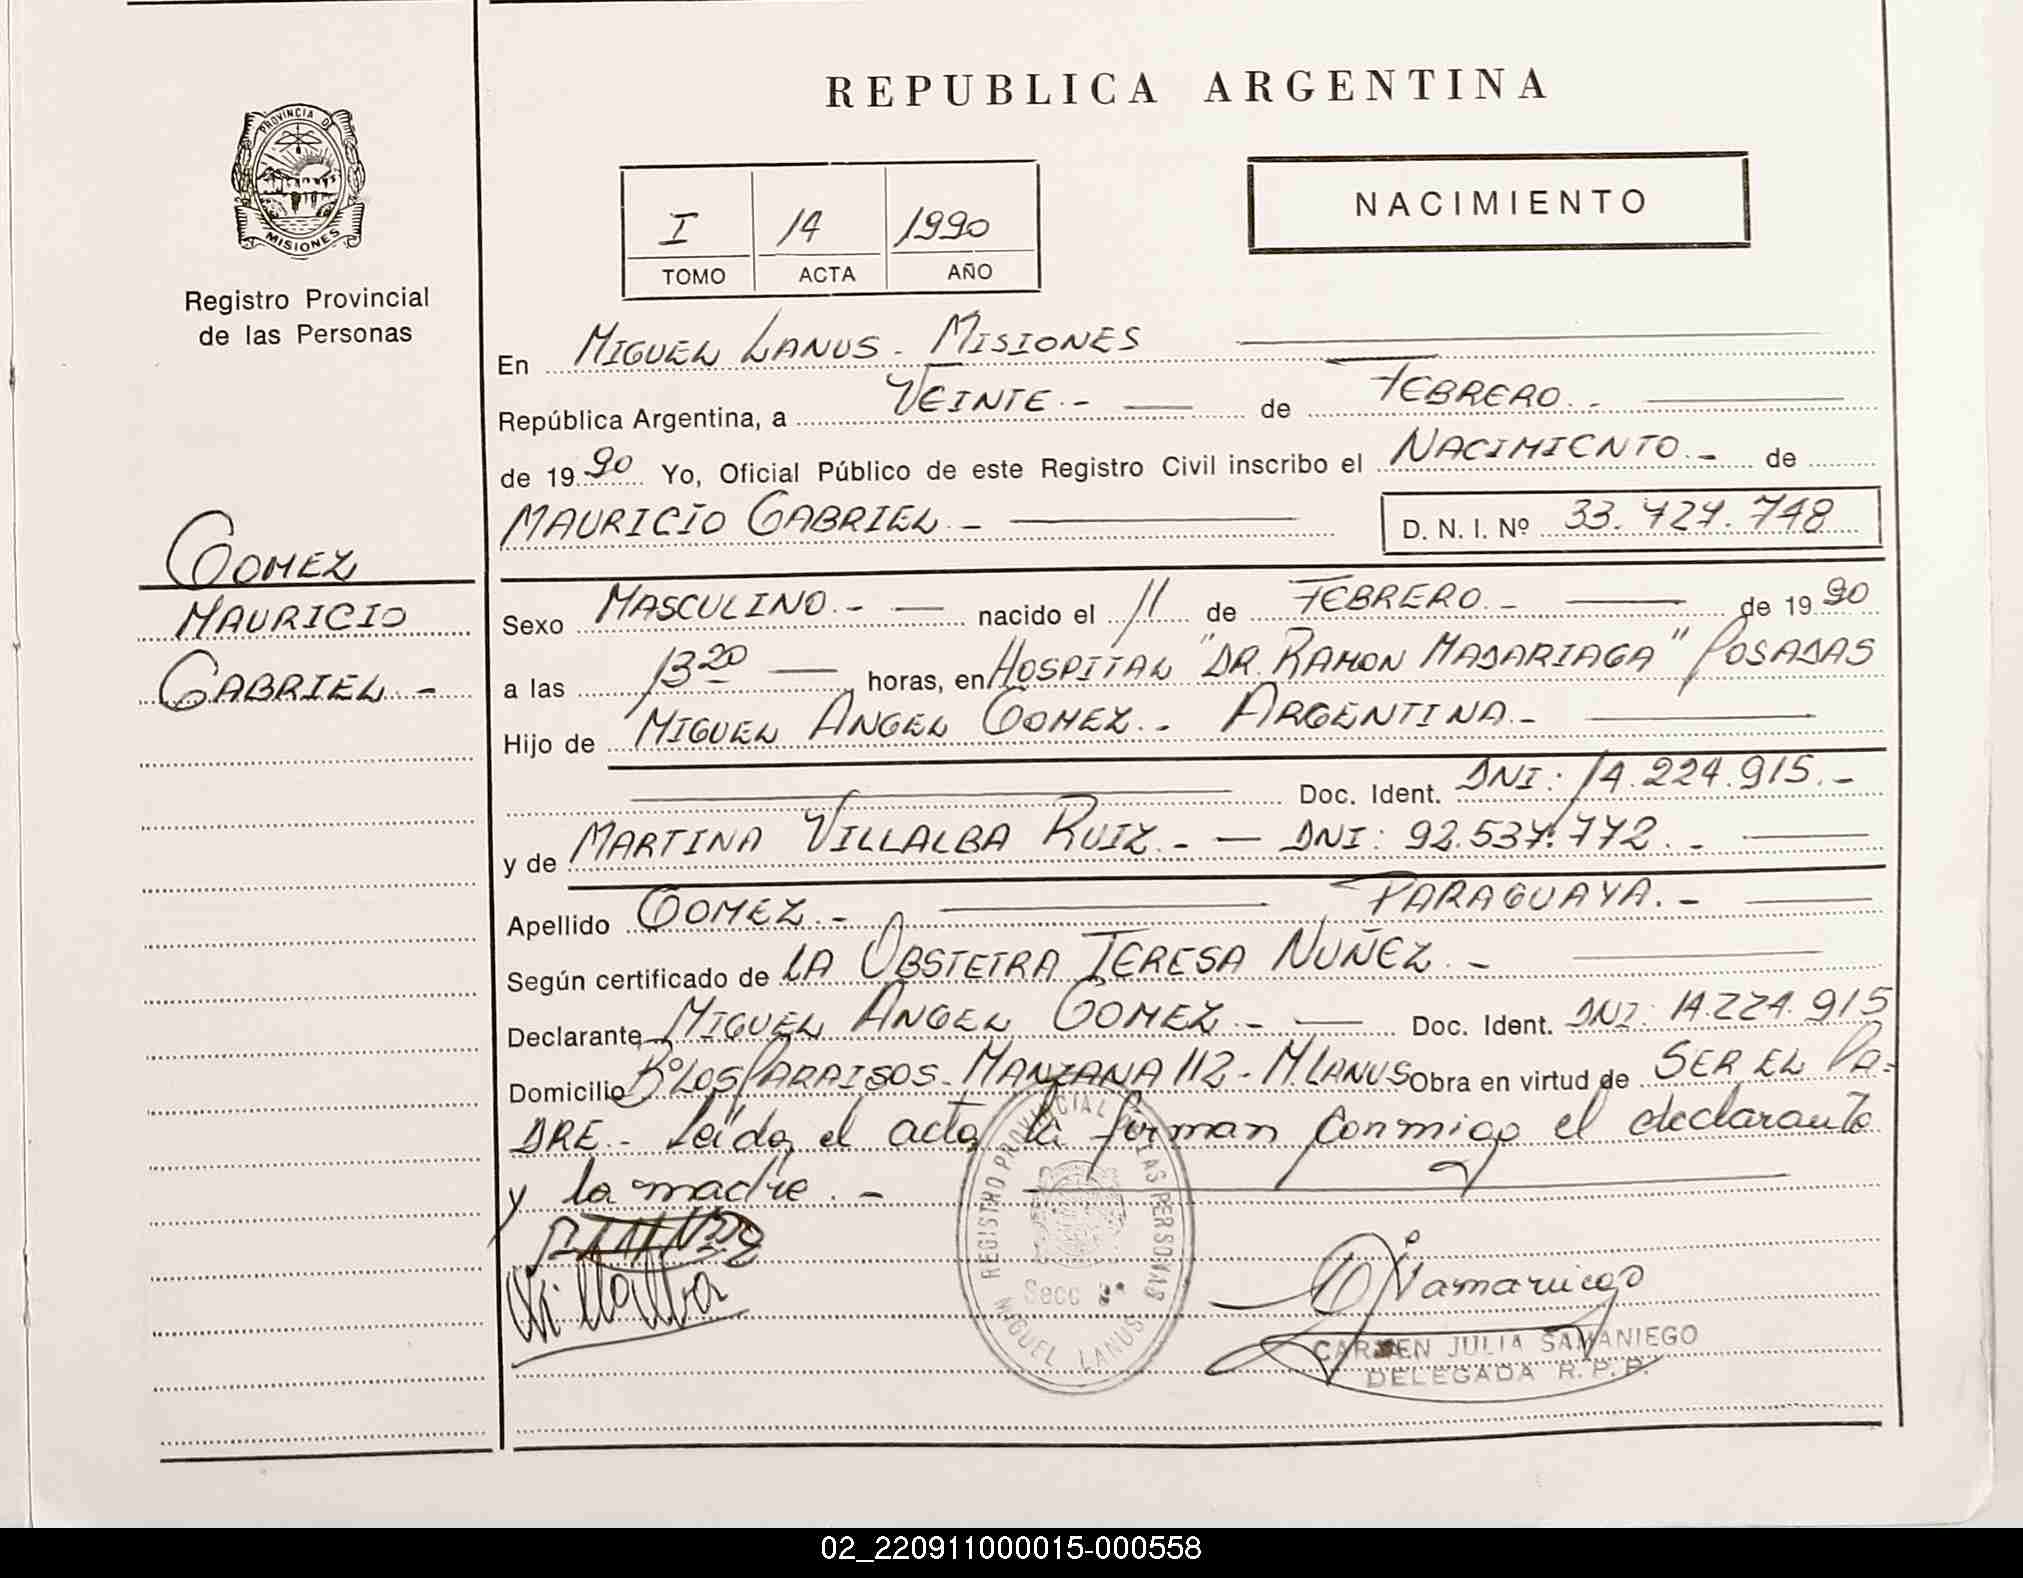 REPUBLICA ARGENTINA
PROVINCIA DE
MISIONES
Registro Provincial
de las Personas
NACIMIENTO
I 14 1990
TOMO ACTA AÑO
En MIGUEL LANUS - MISIONES
República Argentina, a VEINTE.- de FEBRERO.-
de 1990 Yo, Oficial Público de este Registro Civil inscribo el NACIMIENTO.- de
MAURICIO GABRIEL.- D. N. I. Nº 33.424.748
GOMEZ
MAURICIO
GABRIEL.-
Sexo MASCULINO.- nacido el 11 de FEBRERO.- de 1990
a las 13 20 horas, en HOSPITAL "DR. RAMON MADARIAGA" POSADAS
Hijo de MIGUEL ANGEL GOMEZ.- ARGENTINA.-
Doc. Ident. DNI: 14.224.915.-
y de MARTINA VILLALBA RUIZ.- DNI: 92.537.772.-
Apellido GOMEZ.- PARAGUAYA.-
Según certificado de LA OBSTETRA TERESA NUÑEZ.-
Declarante MIGUEL ANGEL GOMEZ.- Doc. Ident. DNI: 14.224.915
Domicilio Bº LOS PARAISOS - MANZANA 112 - M. LANUS Obra en virtud de SER EL PA-
DRE.- Leída el acta la firman conmigo el declarante
y la madre.-
Villalba
REGISTRO PROVINCIAL DE LAS PERSONAS
Secc 2ª
MIGUEL LANUS
CARMEN JULIA SAMANIEGO
DELEGADA R.P.P.
02_220911000015-000558